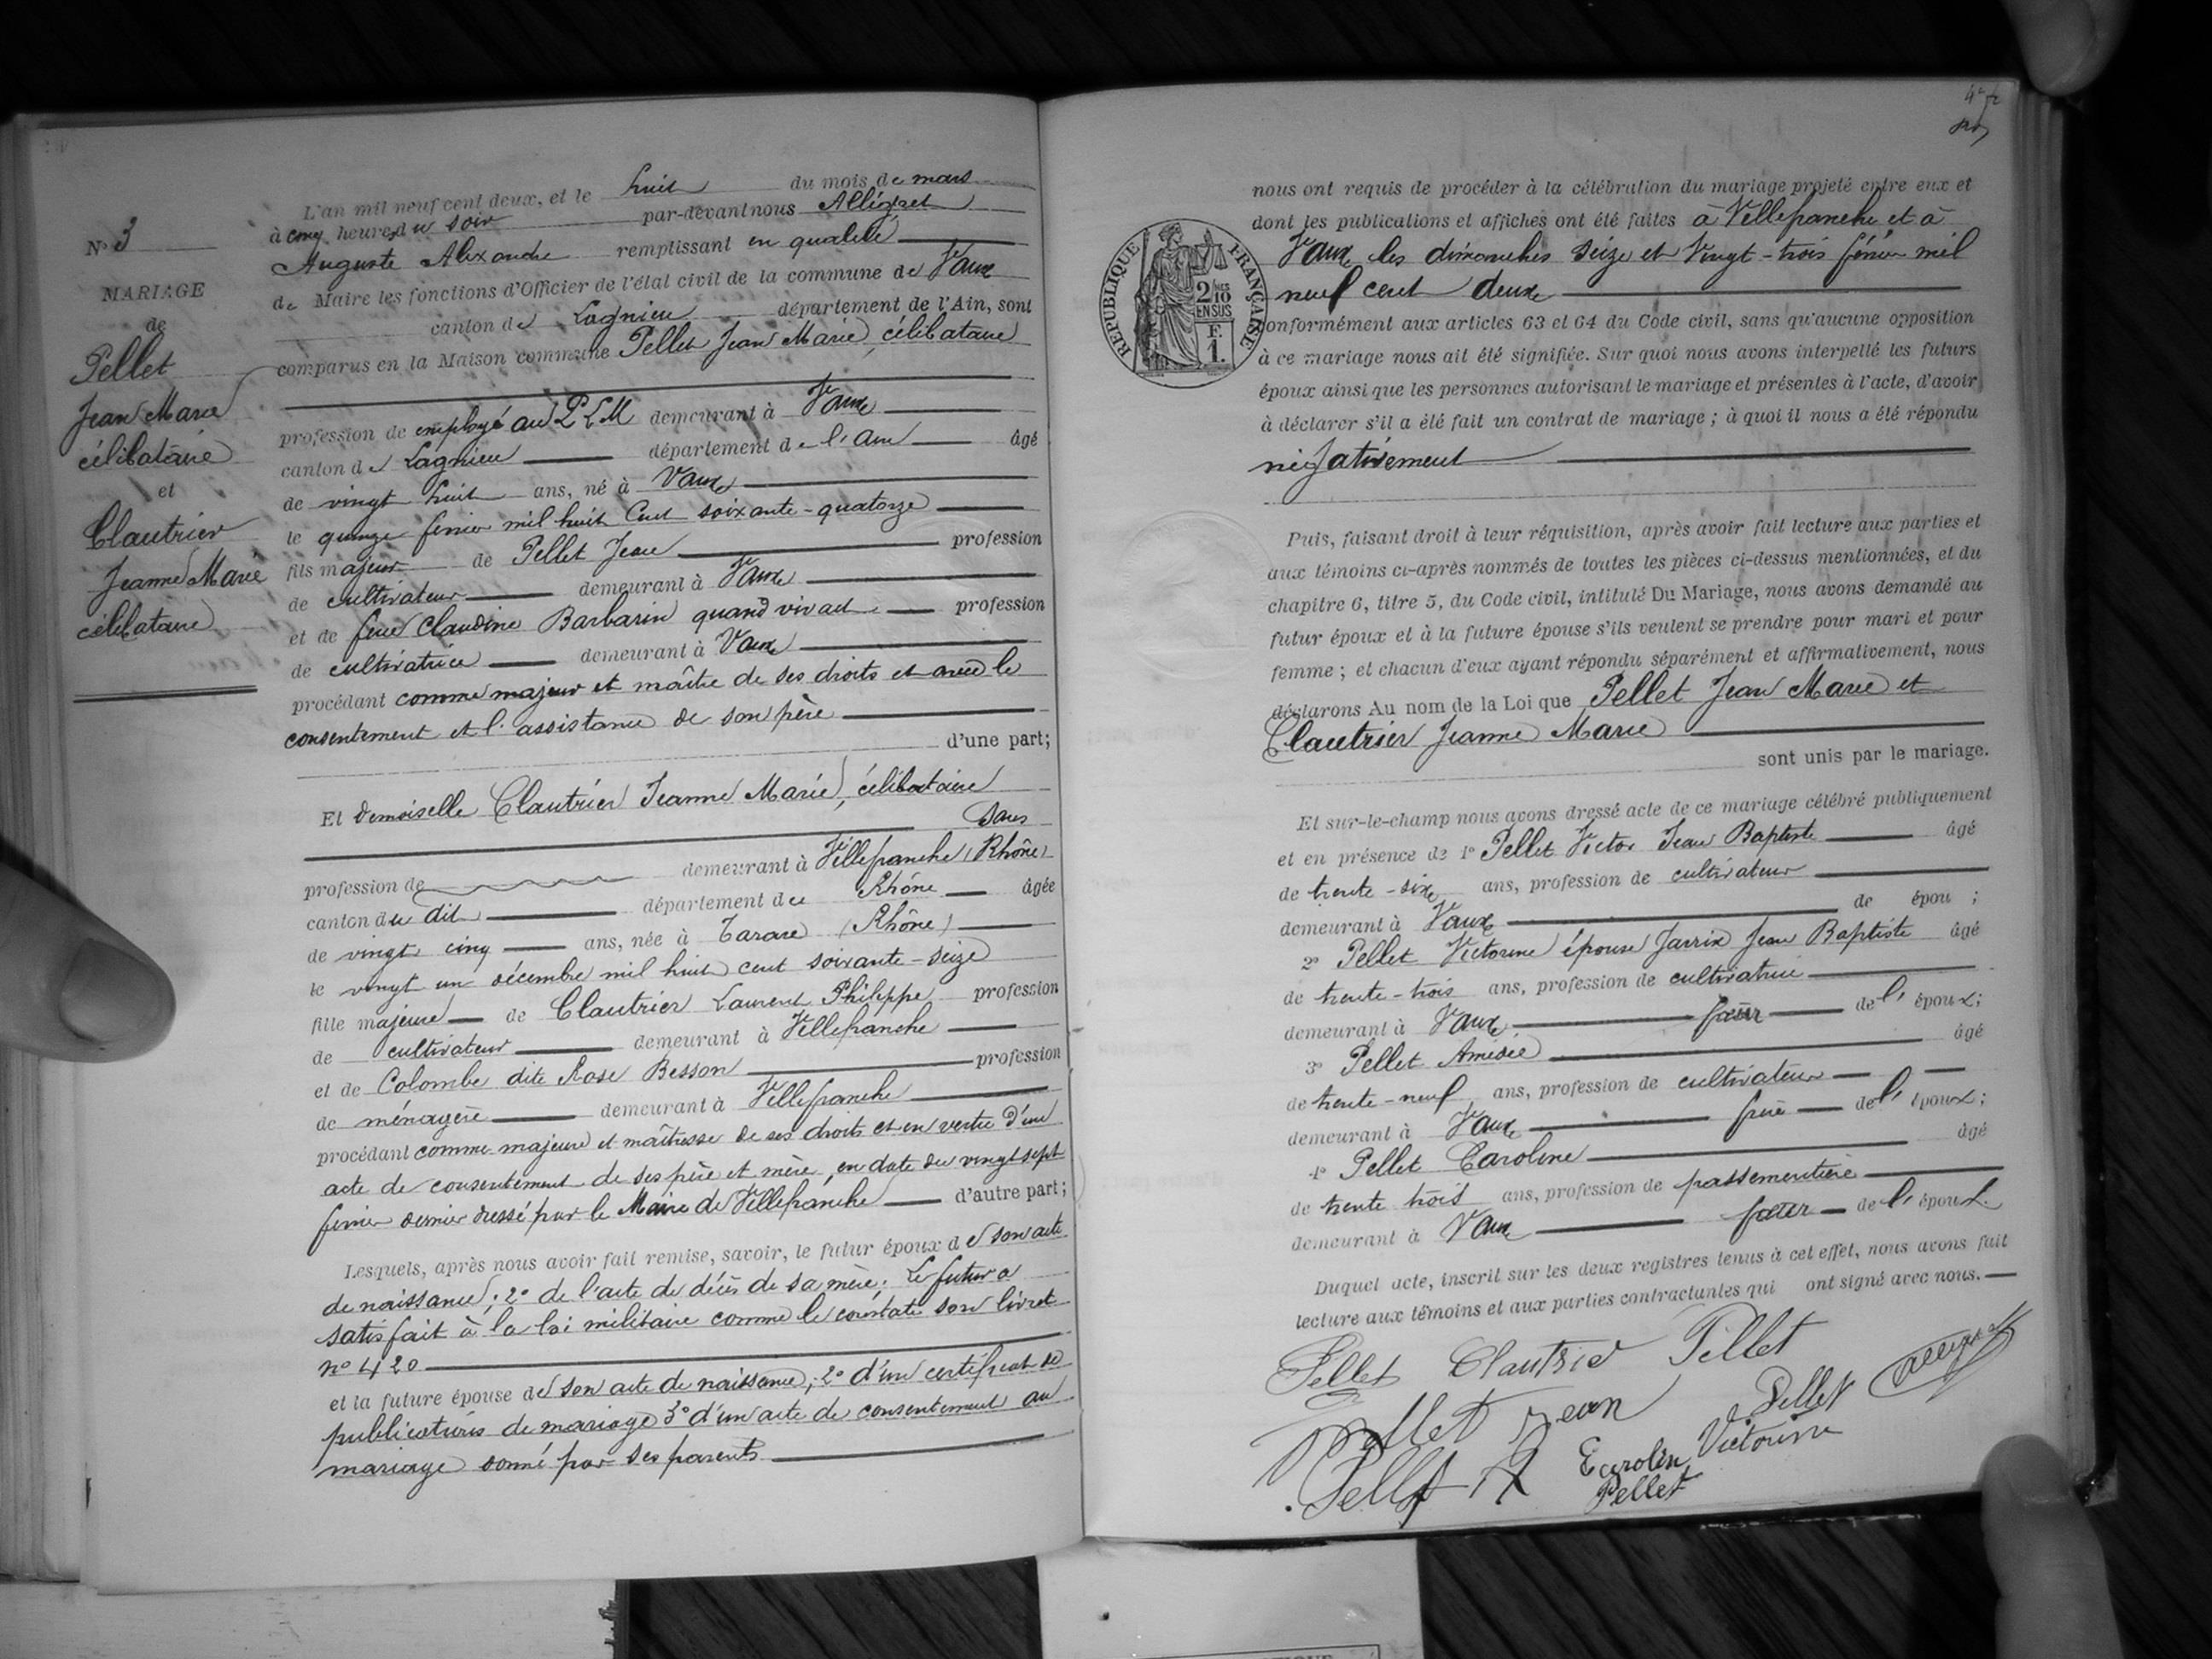 N° 3
MARIAGE
de
Pellet
Jean Marie
célibataire
et
Clautrier
Jeanne Marie
célibataire
L'an mil neuf cent deux, et le huit du mois de mars
à cinq heures du soir par-devant nous Allégret
Auguste Alexandre remplissant en qualité
de Maire les fonctions d'Officier de l'état civil de la commune de Vaux
canton de Lagnieu département de l'Ain, sont
comparus en la Maison commune Pellet Jean Marie, célibataire
profession de employé au PLM demeurant à Vaux
canton de Lagnieu département de l'Ain âgé
de vingt huit ans, né à Vaux
le quinze février mil huit cent soixante-quatorze
fils majeur de Pellet Jean profession
de cultivateur demeurant à Vaux
et de feue Claudine Barbarin quand vivait profession
de cultivatrice demeurant à Vaux
procédant comme majeur et maître de ses droits et avec le
consentement et l'assistance de son père
d'une part;
Et demoiselle Clautrier Jeanne Marie, célibataire
Sans
profession de demeurant à Villefranche (Rhône)
canton du dit département du Rhône âgée
de vingt cinq ans, née à Tarare (Rhône)
le vingt un décembre mil huit cent soixante-seize
fille majeure de Clautrier Laurent Philippe profession
de cultivateur demeurant à Villefranche
et de Colombe dite Rose Besson profession
de ménagère demeurant à Villefranche
procédant comme majeure et maîtresse de ses droits et en vertu d'un
acte de consentement de ses père et mère en date du vingt sept
février dernier dressé par le Maire de Villefranche d'autre part;
Lesquels, après nous avoir fait remise, savoir, le futur époux de son acte
de naissance; 2° de l'acte de décès de sa mère. Le futur a
satisfait à la loi militaire comme le constate son livret
n° 420
et la future épouse de son acte de naissance; 2° d'un certificat de
publications de mariage 3° d'un acte de consentement au
mariage donné par ses parents
nous ont requis de procéder à la célébration du mariage projeté entre eux et
dont les publications et affiches ont été faites à Villefranche et à
Vaux les dimanches seize et vingt-trois février mil
neuf cent deux
RÉPUBLIQUE FRANÇAISE
2/10
EN SUS
F.
1.
conformément aux articles 63 et 64 du Code civil, sans qu'aucune opposition
à ce mariage nous ait été signifiée. Sur quoi nous avons interpellé les futurs
époux ainsi que les personnes autorisant le mariage et présentes à l'acte, d'avoir
à déclarer s'il a été fait un contrat de mariage; à quoi il nous a été répondu
négativement
Puis, faisant droit à leur réquisition, après avoir fait lecture aux parties et
aux témoins ci-après nommés de toutes les pièces ci-dessus mentionnées, et du
chapitre 6, titre 5, du Code civil, intitulé Du Mariage, nous avons demandé au
futur époux et à la future épouse s'ils veulent se prendre pour mari et pour
femme; et chacun d'eux ayant répondu séparément et affirmativement, nous
déclarons Au nom de la Loi que Pellet Jean Marie et
Clautrier Jeanne Marie
sont unis par le mariage.
Et sur-le-champ nous avons dressé acte de ce mariage célébré publiquement
et en présence de 1° Pellet Victor Jean Baptiste âgé
de trente-six ans, profession de cultivateur
demeurant à Vaux de épou ;
2° Pellet Victorine épouse Jarrin Jean Baptiste âgé
de trente-trois ans, profession de cultivatrice
demeurant à Vaux sœur de l'époux;
3° Pellet Amédée âgé
de trente-neuf ans, profession de cultivateur
demeurant à Vaux frère de l'époux;
4° Pellet Caroline âgé
de trente trois ans, profession de passementière
demeurant à Vaux sœur de l'époux.
Duquel acte, inscrit sur les deux registres tenus à cet effet, nous avons fait
lecture aux témoins et aux parties contractantes qui ont signé avec nous.
Pellet Clautrier Pellet
Pellet Jean Pellet Allégret
Victorine
Pellet A Caroline
Pellet